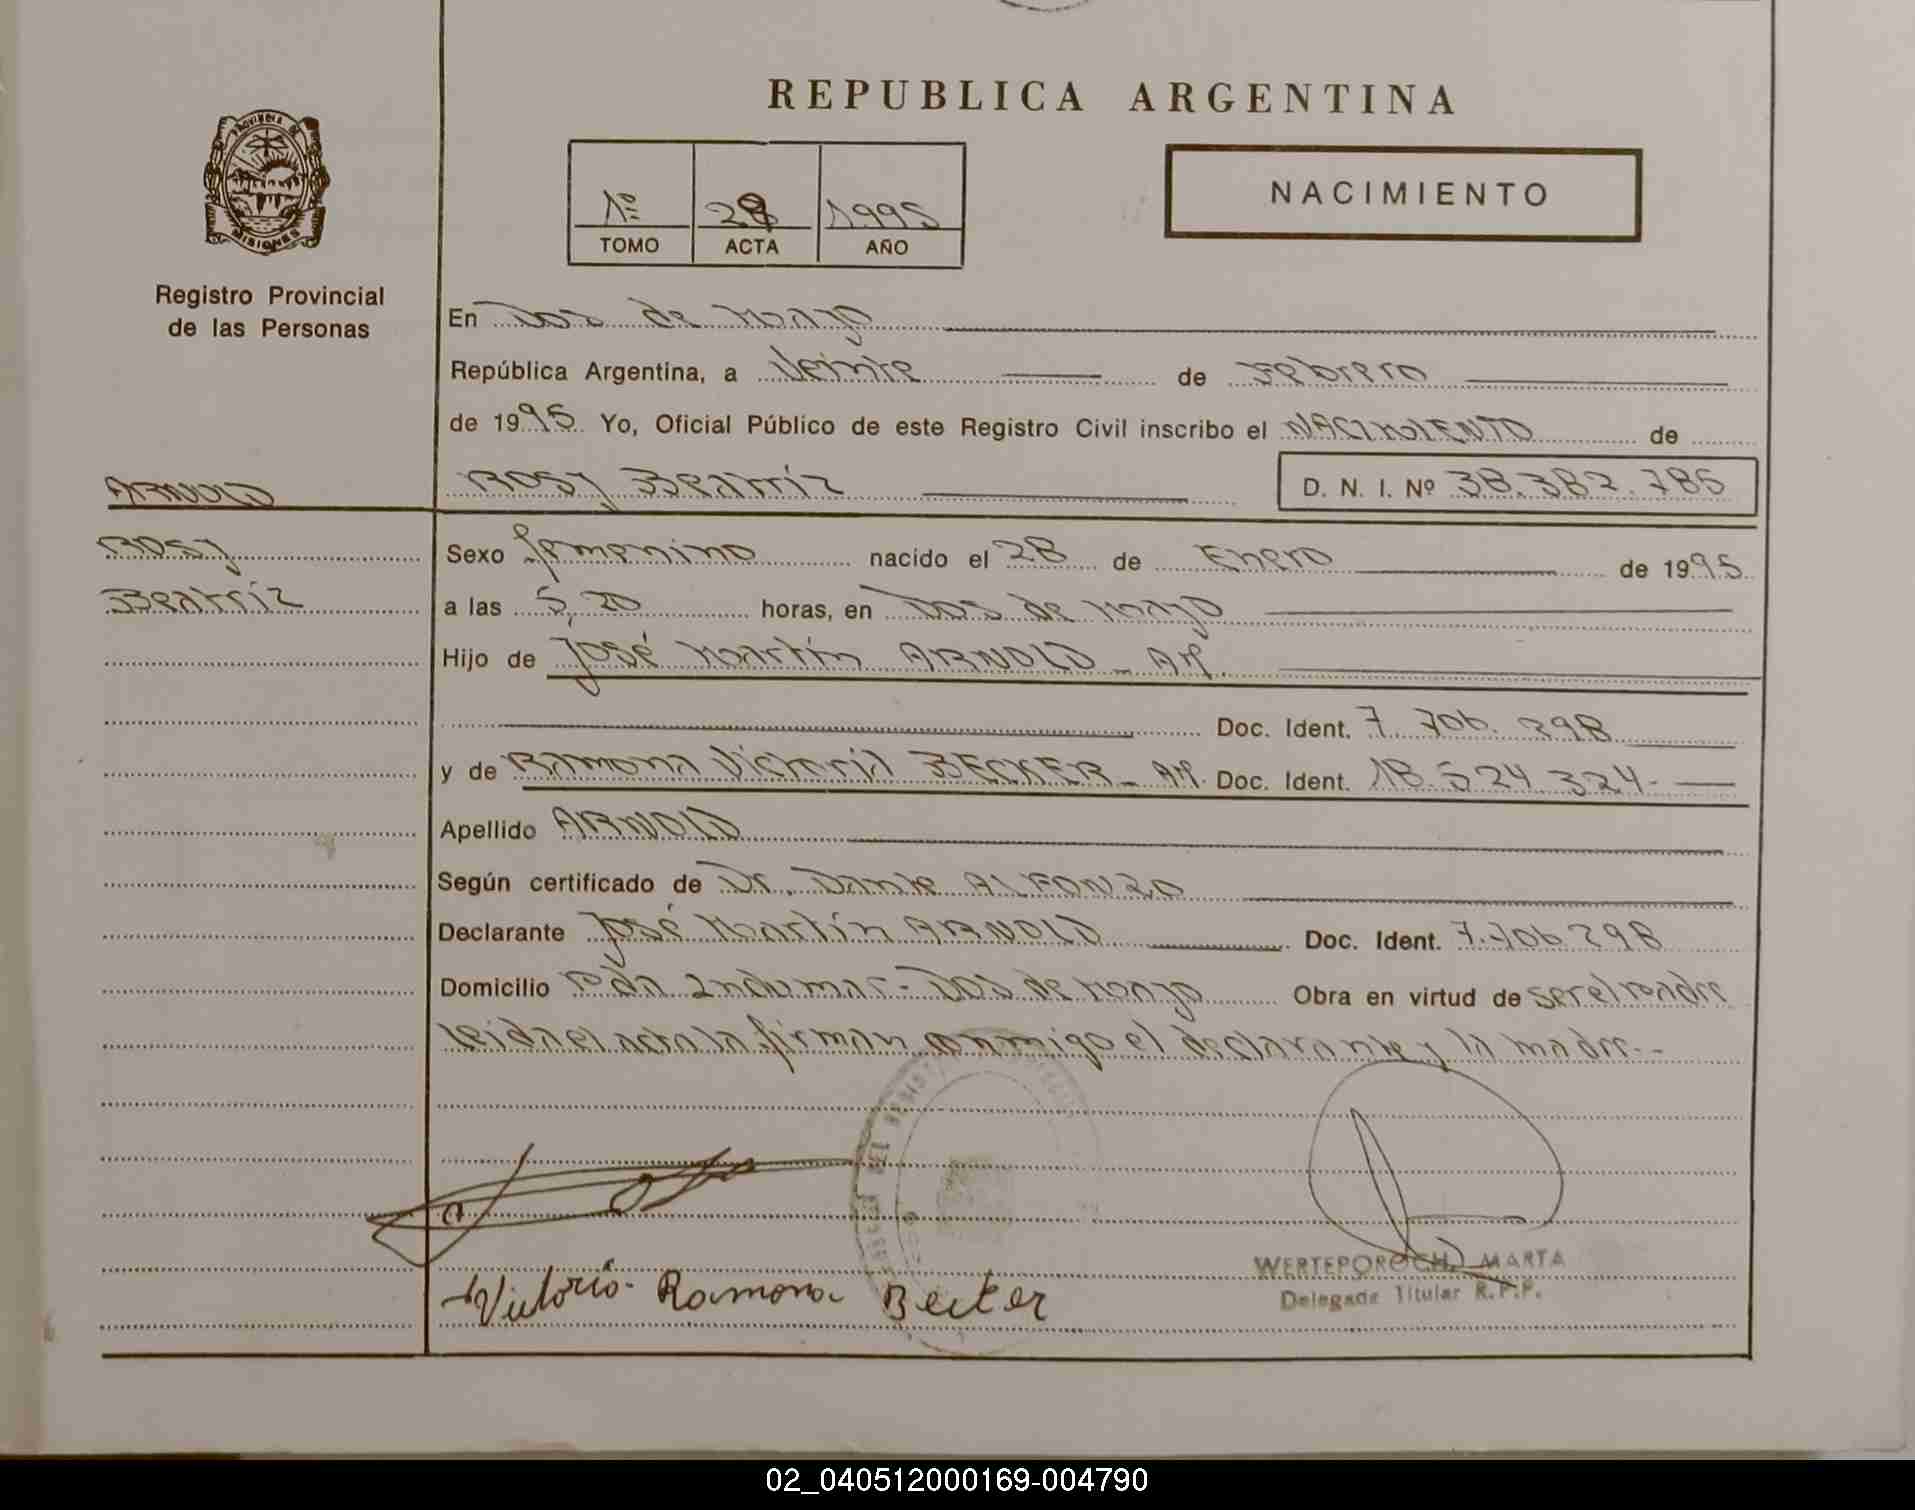 REPUBLICA ARGENTINA
PROVINCIA DE
MISIONES
Registro Provincial
de las Personas
1º 29 1995
TOMO ACTA AÑO
NACIMIENTO
En Dos de Mayo
República Argentina, a Veinte de Febrero
de 1995 Yo, Oficial Público de este Registro Civil inscribo el NACIMIENTO de
ARNOLD
Rosy Beatriz D. N. I. Nº 38.382.785
Rosy
Beatriz
Sexo femenino nacido el 28 de Enero de 1995
a las 5,20 horas, en Dos de Mayo
Hijo de José Martín ARNOLD - AM.
Doc. Ident. 7.706.298
y de Ramona Victoria BECKER - AM. Doc. Ident. 18.524.324-
Apellido ARNOLD
Según certificado de Dr. Dante ALFONZO
Declarante José Martín ARNOLD Doc. Ident. 7.706.298
Domicilio Dos de Mayo Obra en virtud de ser el padre
leida el acta la firman conmigo el declarante y la madre.--
Victoria Ramona Becker
WERTEPOROCH, MARTA
Delegada Titular R.P.P.
02_040512000169-004790